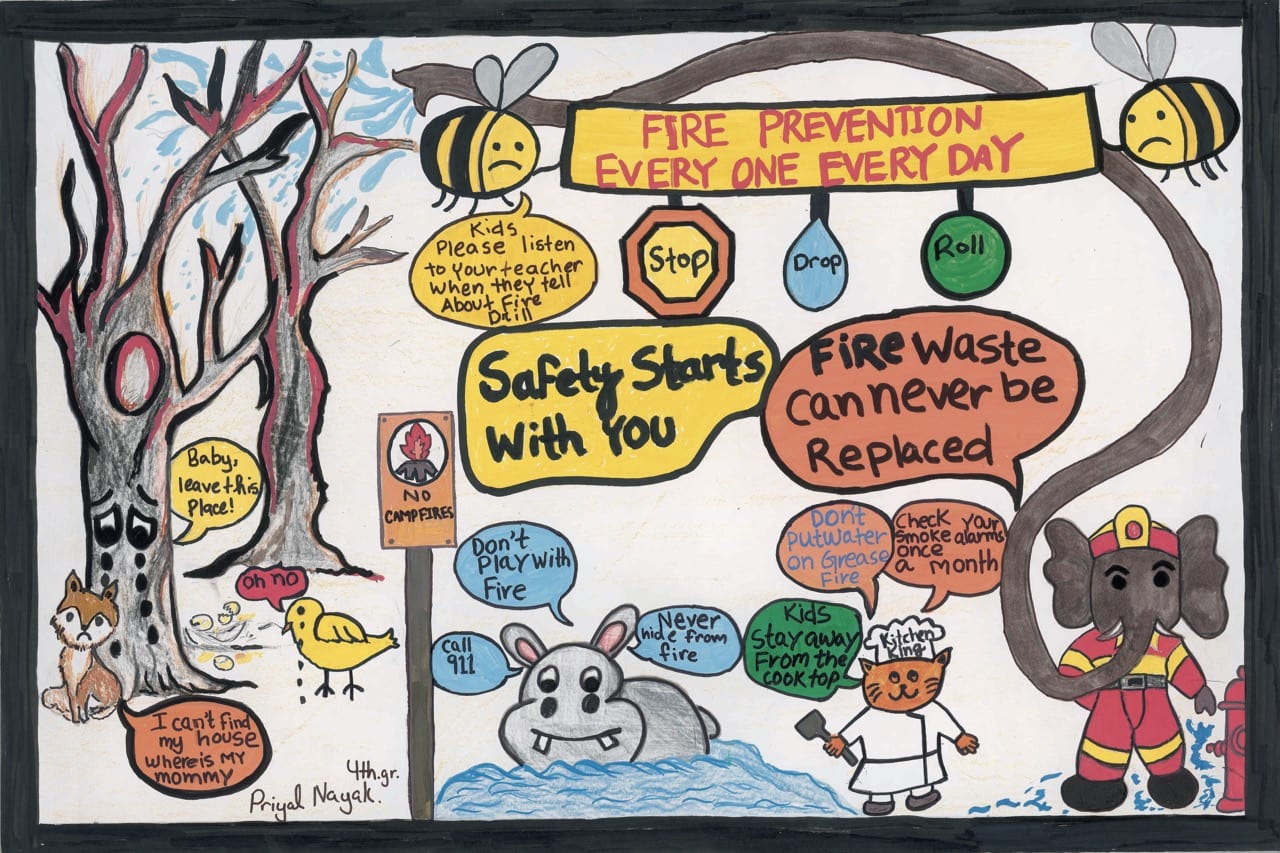 FIRE PREVENTION
EVERY ONE EVERY DAY
Kids
Please listen
to your teacher
when they tell
About Fire
Drill
Stop
Drop
Roll
Safety Starts
With YOU
FiRe Waste
Can never be
Replaced
Baby,
leave this
Place!
NO
CAMPFIRES
Don't
Play With
Fire
Don't
Put Water
on Grease
Fire
Check Your
Smoke alarms
once
a Month
oh no
Call
911
Never
hide from
fire
Kids
Stay away
From the
cook top
Kitchen
King
I can't find
my house
where is My
mommy
4th.gr.
Priyal Nayak.